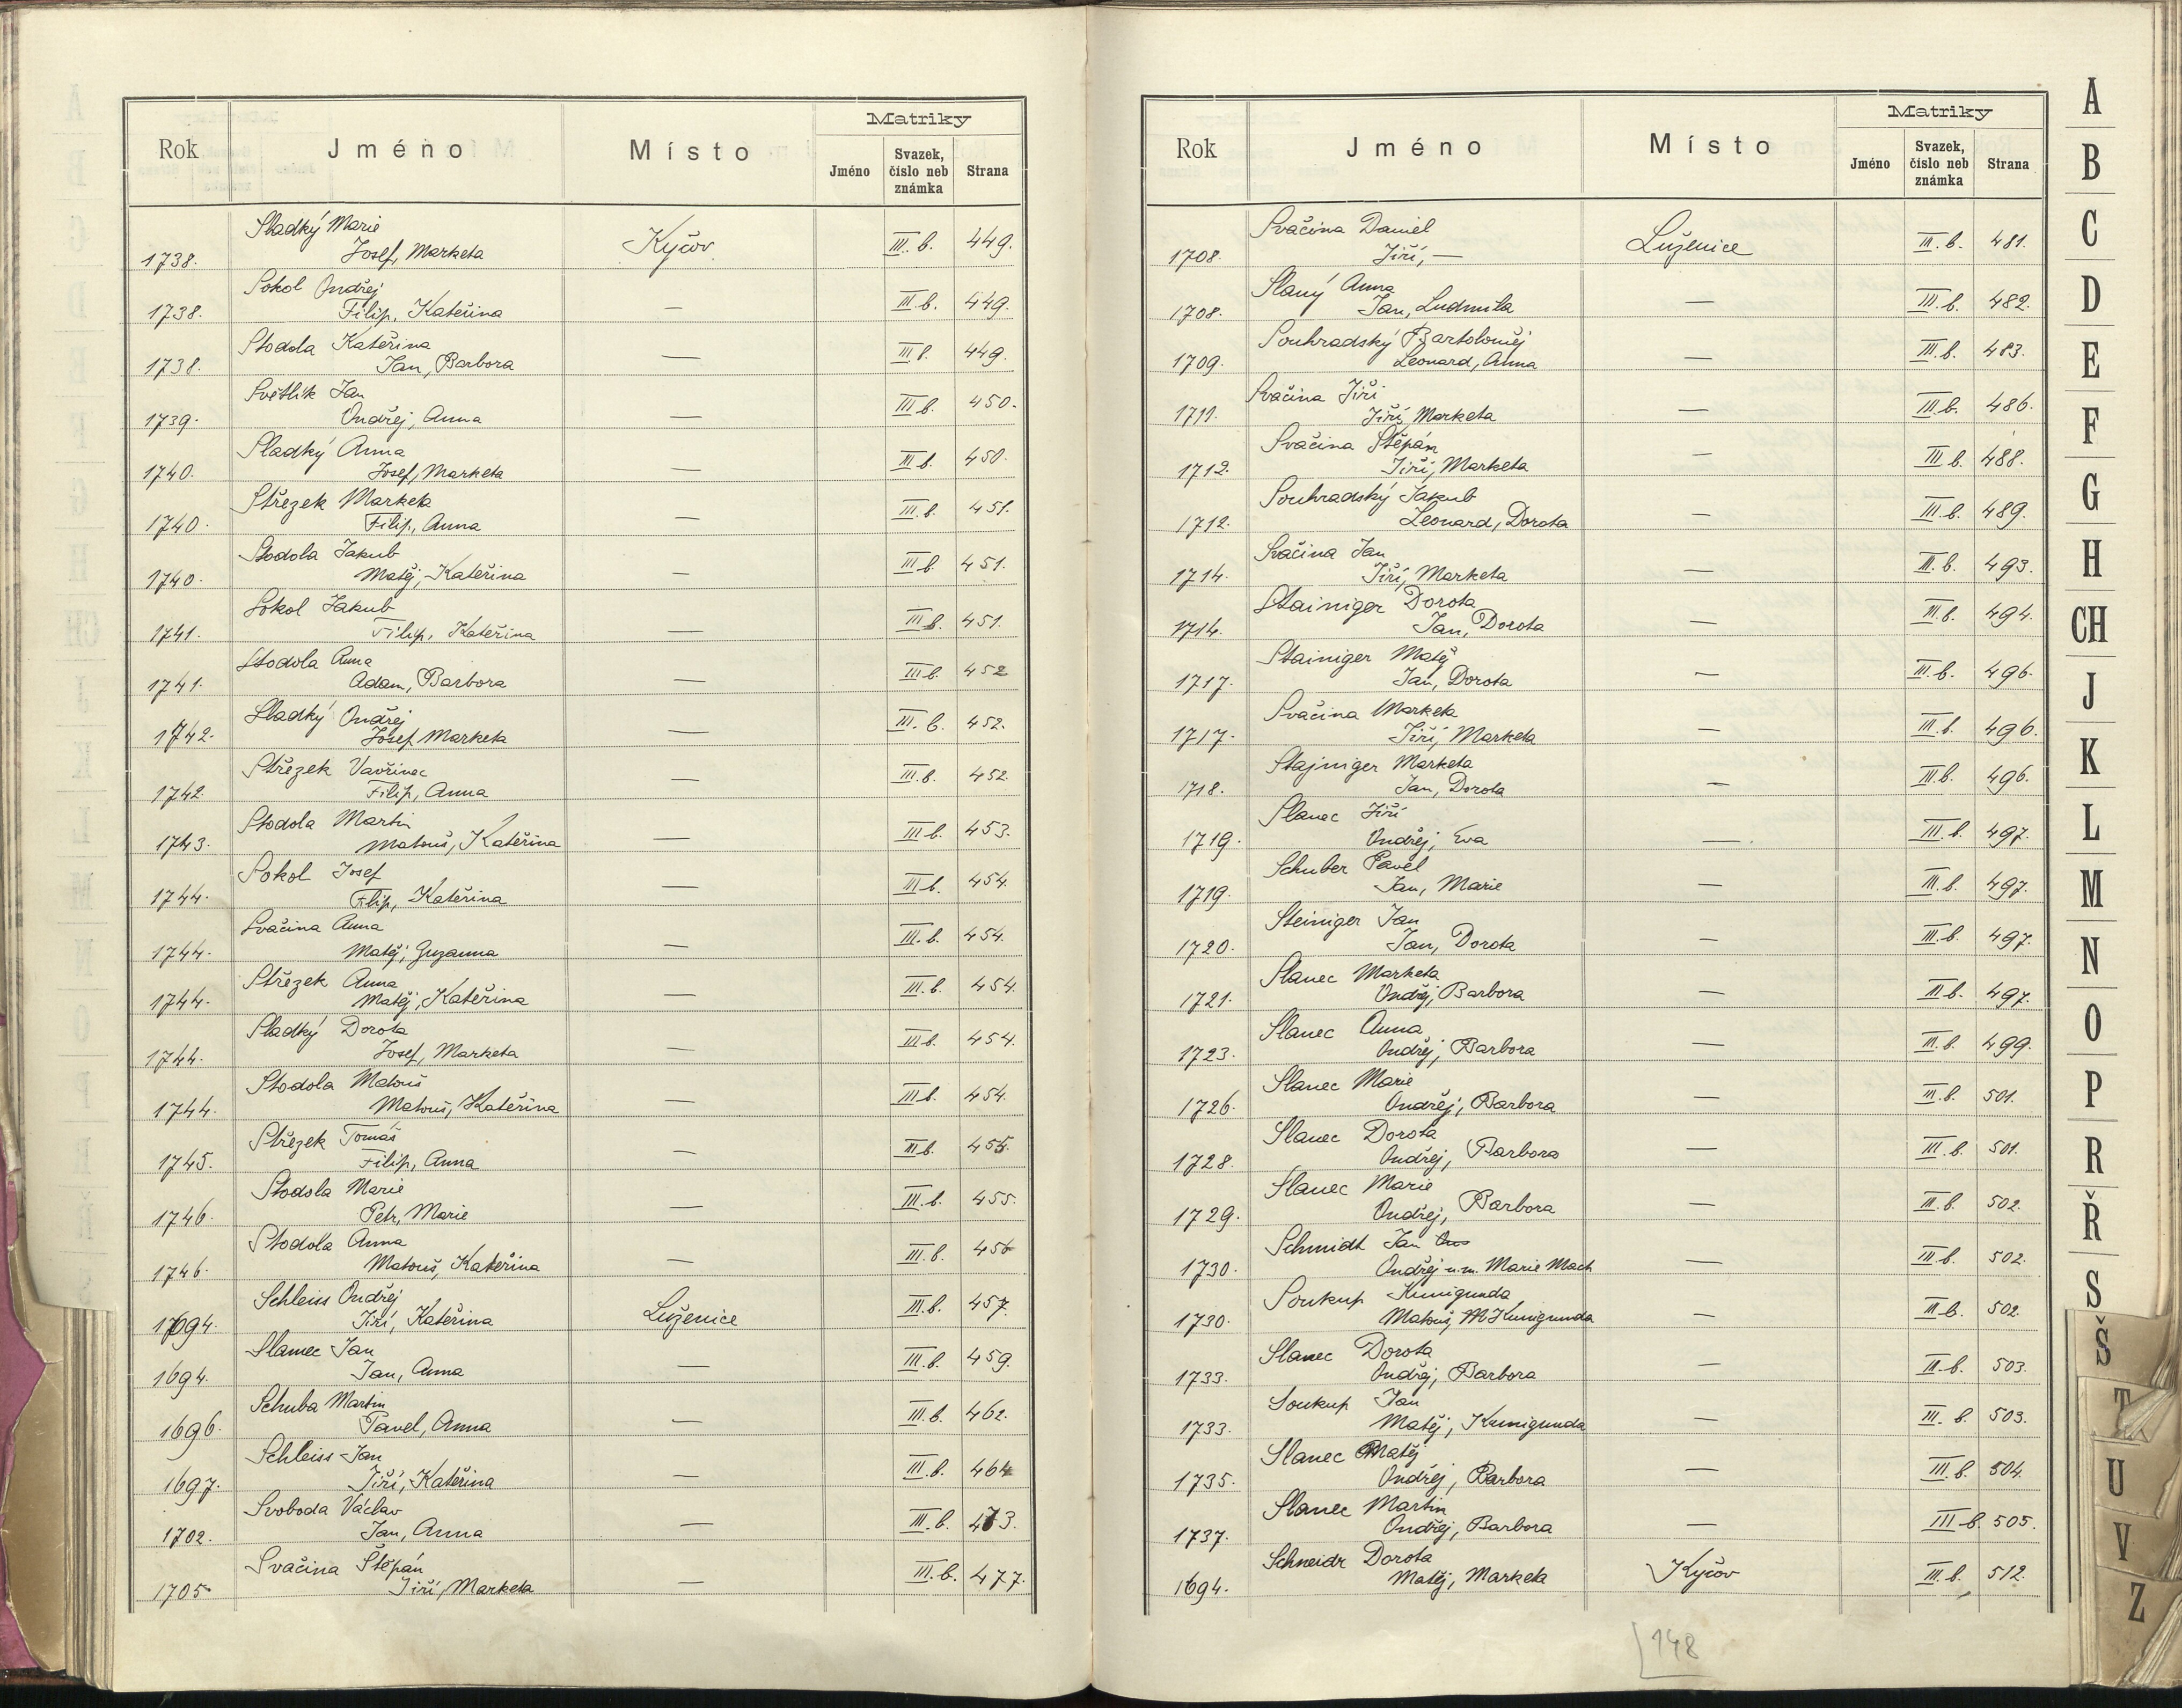 Matriky
Rok Jméno Místo Jméno Svazek, číslo neb známka Strana
Sladký Marie
1738. Josef, Marketa Kyčov III. b. 449.
Sokol Ondřej
1738. Filip, Kateřina — III b. 449.
Stodola Kateřina
1738. Jan, Barbora — III b. 449.
Světlík Jan
1739. Ondřej, Anna — III b. 450.
Sladký Anna
1740. Josef, Marketa — III b. 450.
Střezek Marketa
1740. Filip, Anna — III. b. 451.
Stodola Jakub
1740. Matěj, Kateřina — III b. 451.
Sokol Jakub
1741. Filip, Kateřina — III b. 451.
Stodola Anna
1741. Adam, Barbora — III b. 452
Sladký Ondřej
1742. Josef Marketa — III. b. 452.
Střezek Vavřinec
1742. Filip, Anna — III. b. 452.
Stodola Martin
1743. Matouš, Kateřina — III b. 453.
Sokol Josef
1744. Filip, Kateřina — III b. 454.
Svačina Anna
1744. Matěj, Zuzanna — III. b. 454.
Střezek Anna
1744. Matěj, Kateřina — III. b. 454
Sladký Dorota
1744. Josef, Marketa — III b. 454.
Stodola Matouš
1744. Matouš, Kateřina — III b. 454.
Střezek Tomáš
1745. Filip, Anna — III b. 455.
Stodola Marie
1746. Petr, Marie — III. b. 455.
Stodola Anna
1746. Matouš, Kateřina — III. b. 456
Schleiss Ondřej
1694. Jiří, Kateřina Luženice III. b. 457.
Slamec Jan
1694. Jan, Anna — III. b. 459.
Schuba Martin
1696. Pavel, Anna — III. b. 462.
Schleiss Jan
1697. Jiří, Kateřina — III. b. 464
Svoboda Václav
1702. Jan, Anna — III. b. 473.
Svačina Štěpán
1705 Jiří, Marketa — III. b. 477.
Matriky
Rok Jméno Místo Jméno Svazek, číslo neb známka Strana
Svačina Daniel
1708. Jiří, — Luženice III. b. 481.
Slaný Anna
1708. Jan, Ludmila — III. b. 482.
Souhradský Bartoloměj
1709. Leonard, Anna — III. b. 483.
Svačina Jiří
1711. Jiří, Marketa — III b. 486.
Svačina Štěpán
1712. Jiří, Marketa — III b. 488.
Souhradský Jakub
1712. Leonard, Dorota — III b. 489.
Svačina Jan
1714. Jiří, Marketa — III. b. 493.
Stainiger Dorota
1714. Jan, Dorota — III b. 494.
Stainiger Matěj
1717. Jan, Dorota — III. b. 496.
Svačina Marketa
1717. Jiří, Marketa — III. b. 496.
Stajniger Marketa
1718. Jan, Dorota — III b. 496.
Slanec Jiří
1719. Ondřej, Eva — III. b. 497.
Schuber Pavel
1719. Jan, Marie — III. b. 497.
Steiniger Jan
1720. Jan, Dorota — III. b. 497.
Slanec Marketa
1721. Ondřej, Barbora — III b. 497.
Slanec Anna
1723. Ondřej, Barbora — III. b. 499.
Slanec Marie
1726. Ondřej, Barbora — III. b. 501.
Slanec Dorota
1728. Ondřej, Barbora — III. b. 501.
Slanec Marie
1729. Ondřej, Barbora — III. b. 502.
Schmidt Jan
1730. Ondřej n. m. Marie Mach — III. b. 502.
Soukup Kunigunda
1730. Matouš, Kunigunda — III b. 502.
Slanec Dorota
1733. Ondřej, Barbora — III. b. 503.
Soukup Jan
1733. Matěj, Kunigunda — III. b. 503.
Slanec Matěj
1735. Ondřej, Barbora — III. b. 504.
Slanec Martin
1737. Ondřej, Barbora — III b. 505.
Schneidr Dorota
1694. Matěj, Marketa Kyčov III. b. 512.
148
A
B
C
D
E
F
G
H
CH
J
K
L
M
N
O
P
R
Ř
S
Š
T
U
V
Z